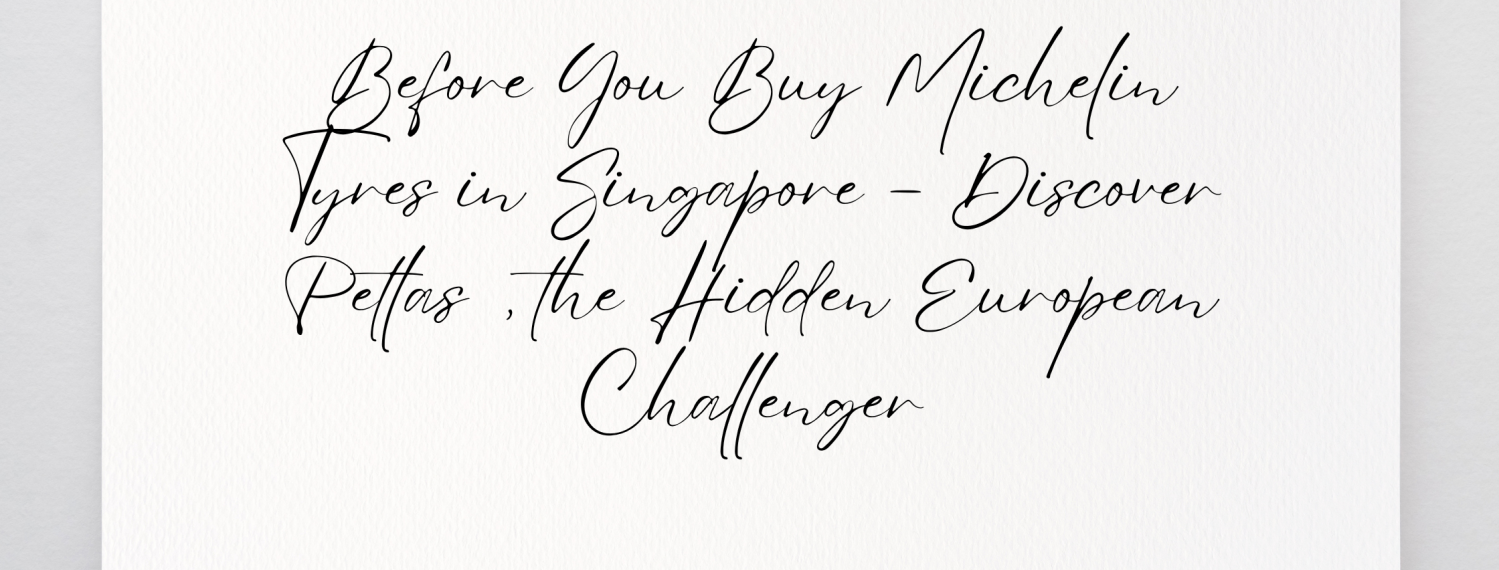 Before You Buy Michelin
Tyres in Singapore – Discover
Pettas , the Hidden European
Challenger